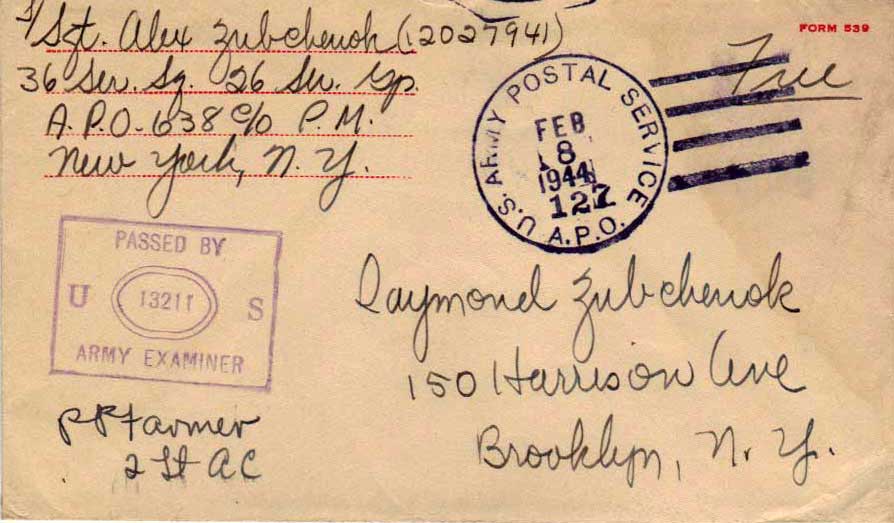 S/Sgt. Alex Zubchenok (12027941)
36 Ser. Sq. 26 Ser. Gp.
A.P.O. 638 c/o P.M.
New York, N.Y.
FORM 539
Free
U.S. ARMY POSTAL SERVICE
FEB
8
1944
127
A.P.O.
PASSED BY
U 13211 S
ARMY EXAMINER
Raymond Zubchenok
150 Harrison Ave
Brooklyn, N.Y.
PP Farmer
2 Lt AC